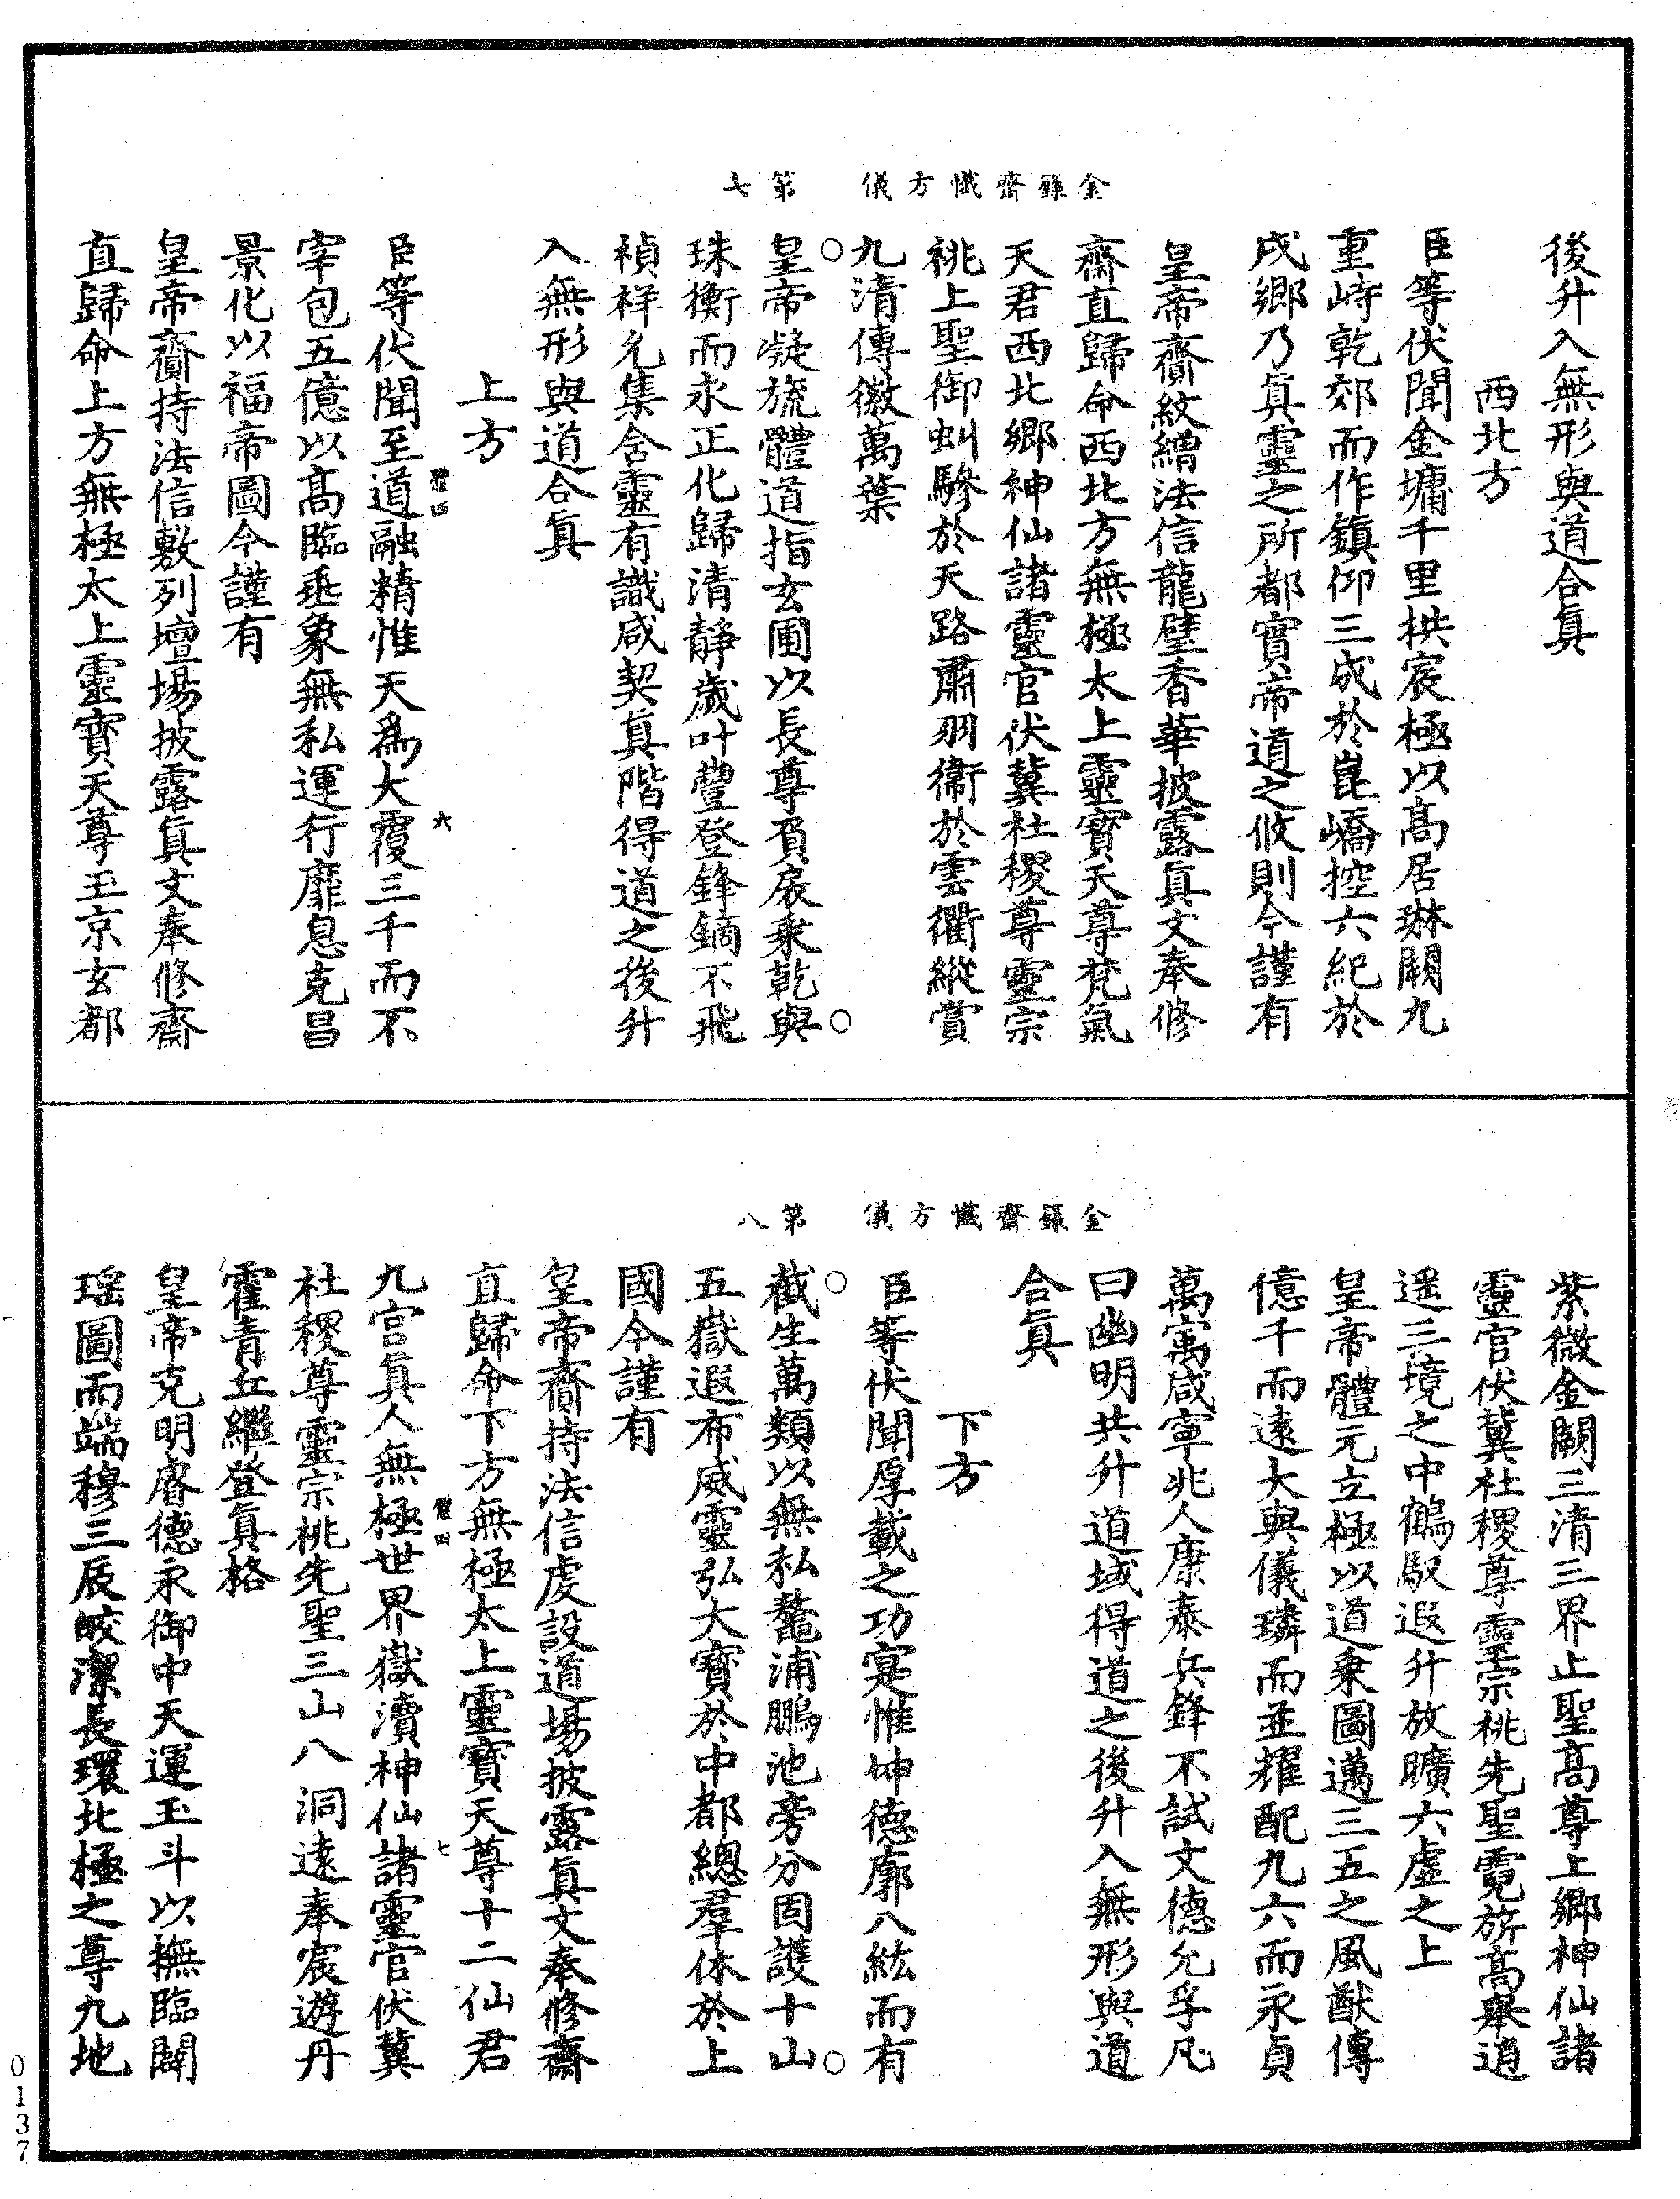 金籙齋懺方儀　第七
後升入無形與道合真
西北方
臣等伏聞金墉千里拱宸極以高居琳闕九
重峙乾郊而作鎮仰三成於崑嶠控六紀於
戌鄉乃真靈之所都實帝道之攸則今謹有
皇帝齎紋繒法信龍壁香華披露真文奉修
齋直歸命西北方無極太上靈寶天尊梵氣
天君西北鄉神仙諸靈官伏冀社稷尊靈宗
祧上聖御虯驂於天路肅羽衞於雲衢縱賞
九清傳徽萬葉
皇帝凝旒體道指玄圃以長尊負扆乘乾與
珠衡而永正化歸清靜歲叶豐登鋒鏑不飛
禎祥允集含靈有識咸契真階得道之後升
入無形與道合真
上方
臣等伏聞至道融精惟天爲大覆三千而不
宰包五億以高臨垂象無私運行靡息克昌
景化以福帝圖今謹有
皇帝齎持法信敷列壇場披露真文奉修齋
直歸命上方無極太上靈寶天尊玉京玄都
六
金籙齋懺方儀　第八
紫微金闕三清三界止聖高尊上鄉神仙諸
靈官伏冀社稷尊靈宗祧先聖霓旂高舉逍
遥三境之中鶴馭遐升放曠六虛之上
皇帝體元立極以道乘圖邁三五之風猷傳
億千而遠大與儀璘而並耀配九六而永貞
萬寓咸寧兆人康泰兵鋒不試文德允孚凡
曰幽明共升道域得道之後升入無形與道
合真
下方
臣等伏聞厚載之功寔惟坤德廓八紘而有
截生萬類以無私鼇浦鵬池旁分固護十山
五嶽遐布威靈弘大寶於中都總羣休於上
國今謹有
皇帝齎持法信虔設道場披露真文奉修齋
直歸命下方無極太上靈寶天尊十二仙君
九宫真人無極世界嶽瀆神仙諸靈官伏冀
社稷尊靈宗祧先聖三山八洞遠奉宸遊丹
霍青丘繼登真格
皇帝克明睿德永御中天運玉斗以撫臨闢
瑶圖而端穆三辰皎潔長環北極之尊九地
七
0137